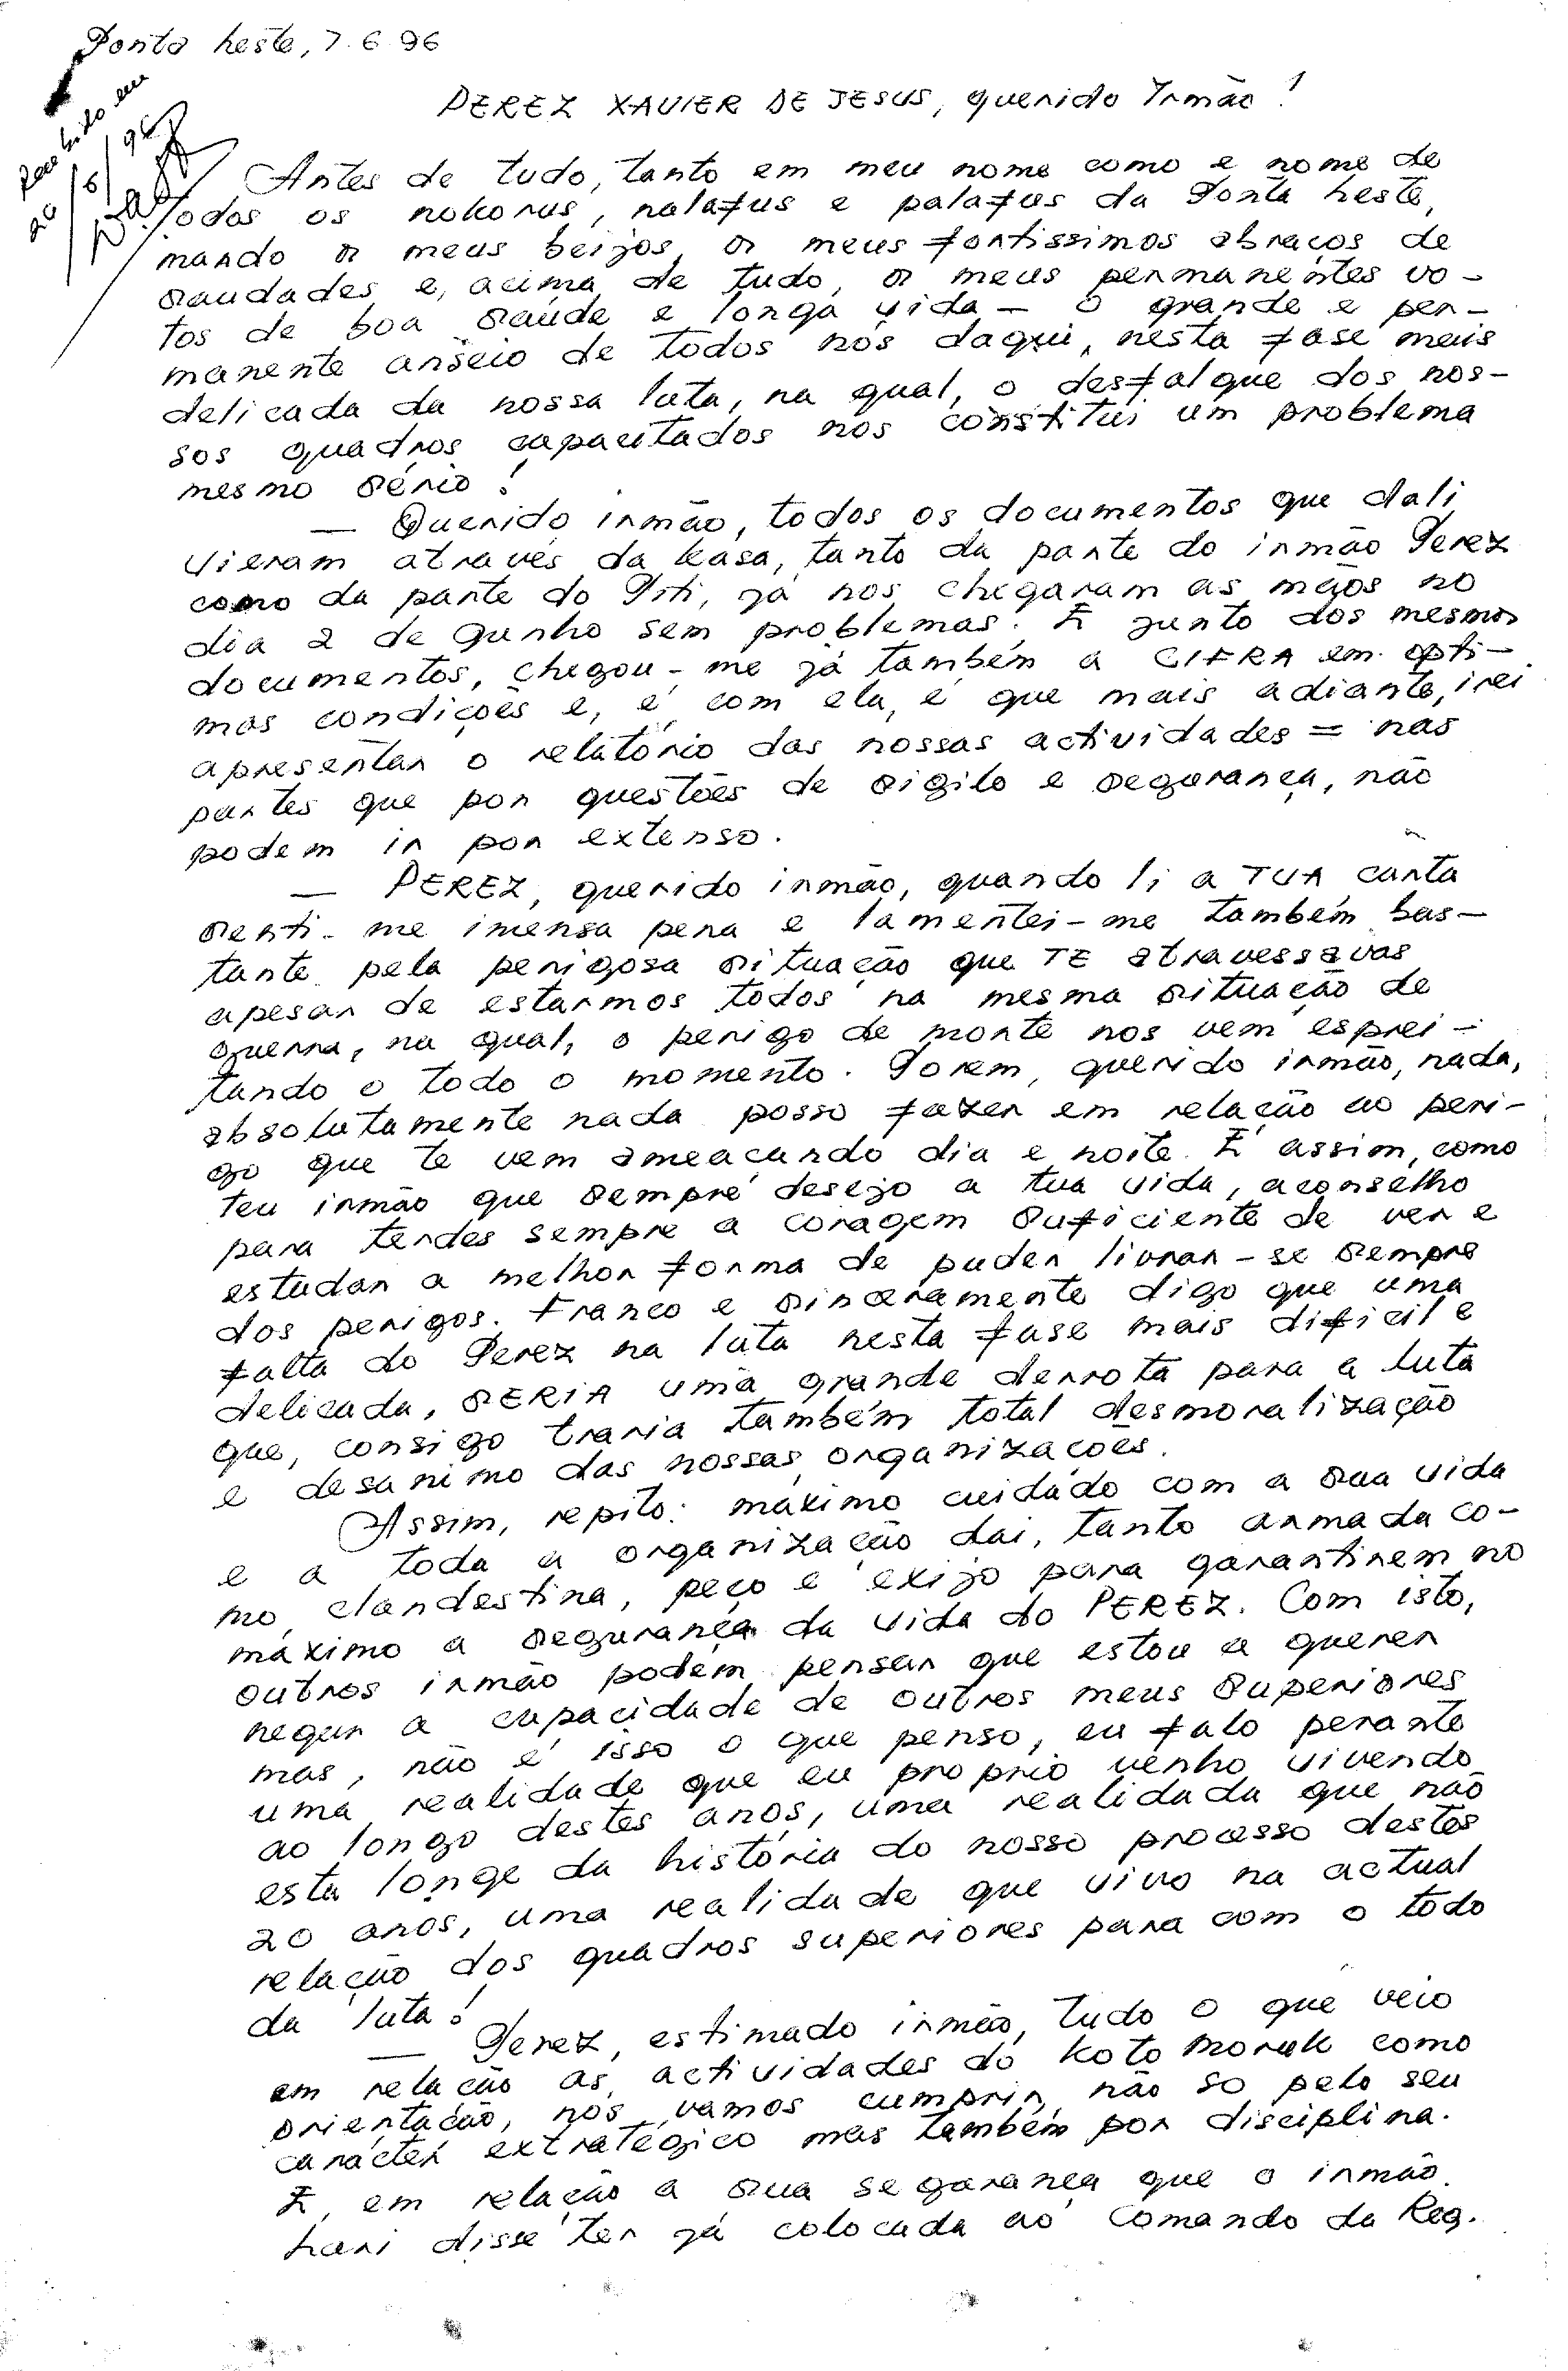 Ponta Leste, 7.6.96
Recebido em
20/6/96
PEREZ XAVIER DE JESUS, querido Irmão!
Antes de tudo, tanto em meu nome como e nome de
todos os nokorus, nalafus e palafus da Ponta Leste,
mando os meus beijos, os meus fortissimos abraços de
saudades e, acima de tudo, os meus permanentes vo-
tos de boa saúde e longa vida - o grande e per-
manente anseio de todos nós daqui, nesta fase mais
delicada da nossa luta, na qual, o desfalque dos nos-
sos quadros capacitados nos constitui um problema
mesmo sério!
— Querido irmão, todos os documentos que dali
vieram através da kasa, tanto da parte do irmão Perez
como da parte do Piti, já nos chegaram as mãos no
dia 2 de Junho sem problemas. E junto dos mesmos
documentos, chegou-me já também a CIFRA em opti-
mas condições e, é com ela, é que mais adiante, irei
apresentar o relatório das nossas actividades = nas
partes que por questões de sigilo e segurança, não
podem ir por extenso.
— PEREZ, querido irmão, quando li a TUA carta
senti-me imensa pena e lamentei-me também bas-
tante pela perigosa situação que TE atravessavas
apesar de estarmos todos na mesma situação de
guerra, na qual, o perigo de morte nos vem esprei-
tando o todo o momento. Porem, querido irmão, nada,
absolutamente nada posso fazer em relação ao peri-
go que te vem ameaçando dia e noite. E assim, como
teu irmão que sempre desejo a tua vida, aconselho
para terdes sempre a coragem suficiente de ver e
estudar a melhor forma de puder livrar-se sempre
dos perigos. Franco e sinceramente digo que uma
falta do Perez na luta nesta fase mais dificil e
delicada, SERIA uma grande derrota para a luta
que, consigo traria também total desmoralização
e desanimo das nossas organizações.
Assim, repito: máximo cuidado com a sua vida
e a toda a organização dai, tanto armada co-
mo clandestina, peço e exijo para garantirem no
máximo a segurança da vida do PEREZ. Com isto,
outros irmão podem pensar que estou a querer
negar a capacidade de outros meus superiores
mas, não é isso o que penso, eu falo perante
uma realidade que eu proprio venho vivendo
ao longo destes anos, uma realidada que não
esta longe da história do nosso processo destes
20 anos, uma realidade que vivo na actual
relação dos quadros superiores para com o todo
da luta!
— Perez, estimado irmão, tudo o que veio
em relação as actividades do Koto Moruk como
orientação, nós vamos cumprir, não so pelo seu
carácter extratégico mas também por disciplina.
E em relação a sua segurança que o irmão
Lari disse ter já colocada ao Comando da Reg.